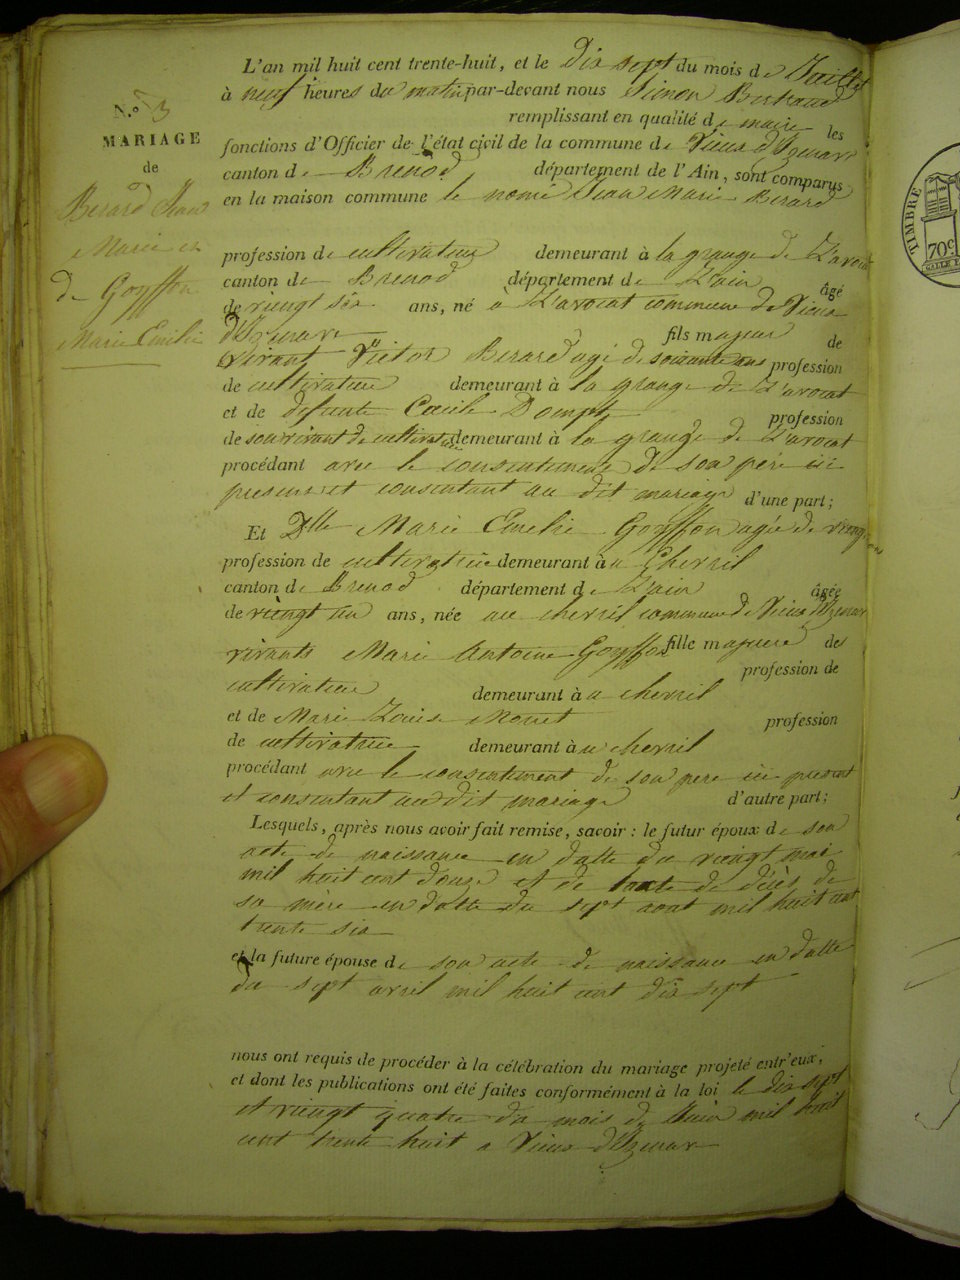 N.o 3
MARIAGE
de
Berard Jean
Marie et
de Goyffon
Marie Emélie
L'an mil huit cent trente-huit, et le dix sept du mois de Juillet
à neuf heures du matin par-devant nous Simon Bertrand
remplissant en qualité de maire les
fonctions d'Officier de l'état civil de la commune de Vieux d'Izenave
canton de Brenod département de l'Ain, sont comparus
en la maison commune le nomé Jean Marie Berard
profession de cultivateur demeurant à la grange de L'avocat
canton de Brenod département de L'ain âgé
de vingt six ans, né à L'avocat commune de Vieux
d'Izenave fils majeur de
vivant Victor Berard agé de soixante ans profession
de cultivateur demeurant à la grange de L'avocat
et de defunte Cecile Dompt profession
de son vivant de cultivatrice demeurant à la grange de L'avocat
procédant avec le consentement de son père ici
present et consentant au dit mariage d'une part;
Et Dlle Marie Emelie Goyffon agée de vingt
profession de cultivatrice demeurant à a Chevril
canton de Brenod département de L'ain âgée
de viengt un ans, née au chevril commune de Vieux d'Izenave
vivants Marie Antoine Goyffon fille majeure des
profession de
cultivateur demeurant à a chevril
et de Marie Louise Monet profession
de cultivatrice demeurant à a chevril
procédant avec le consentement de son pere ici present
et consentant au dit mariage d'autre part;
Lesquels, après nous avoir fait remise, savoir: le futur époux de son
acte de naissance en datte du viengt mai
mil huit cent douze et de l'acte de décès de
sa mère en datte du sept aout mil huit cent
trente six
et la future épouse de son acte de naissance en datte
du sept avril mil huit cent dix sept
nous ont requis de procéder à la célébration du mariage projeté entr'eux,
et dont les publications ont été faites conformément à la loi le dix sept
et viengt quatre du mois de Juin mil huit
cent trente huit a Vieux d'Izenave
TIMBRE
70c